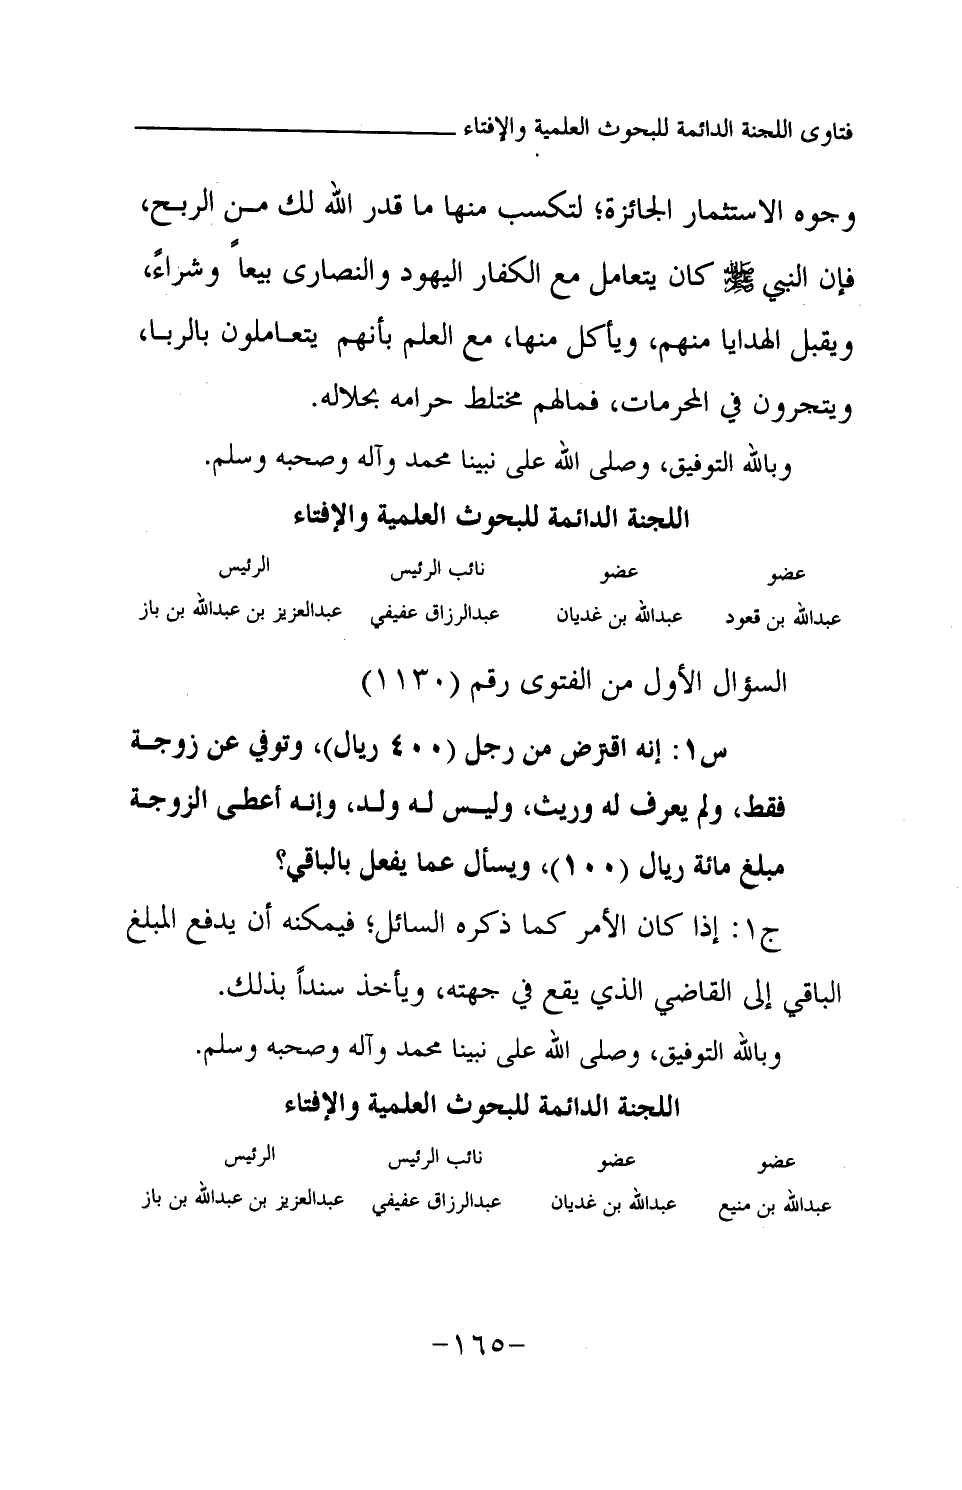 فتاوى اللجنة الدائمة للبحوث العلمية والإفتاء
وجوه الاستثمار الجائزة؛ لتكسب منها ما قدر الله لك مـن الربـح،
فإن النبي ﷺ كان يتعامل مع الكفار اليهود والنصارى بيعاً وشراءً،
ويقبل الهدايا منهم، ويأكل منها، مع العلم بأنهم يتعـاملون بالربـا،
ويتجرون في المحرمات، فمالهم مختلط حرامه بحلاله.
وبالله التوفيق، وصلى الله على نبينا محمد وآله وصحبه وسلم.
اللجنة الدائمة للبحوث العلمية والإفتاء
عضو عضو نائب الرئيس الرئيس
عبدالله بن قعود عبدالله بن غديان عبدالرزاق عفيفي عبدالعزيز بن عبدالله بن باز
السؤال الأول من الفتوى رقم (١١٣٠)
س١: إنه اقترض من رجل (٤٠٠ ريال)، وتوفي عن زوجـة
فقط، ولم يعرف له وريث، وليـس لـه ولـد، وإنـه أعطـى الزوجـة
مبلغ مائة ريال (١٠٠)، ويسأل عما يفعل بالباقي؟
ج١: إذا كان الأمر كما ذكره السائل؛ فيمكنه أن يدفع المبلغ
الباقي إلى القاضي الذي يقع في جهته، ويأخذ سنداً بذلك.
وبالله التوفيق، وصلى الله على نبينا محمد وآله وصحبه وسلم.
اللجنة الدائمة للبحوث العلمية والإفتاء
عضو عضو نائب الرئيس الرئيس
عبدالله بن منيع عبدالله بن غديان عبدالرزاق عفيفي عبدالعزيز بن عبدالله بن باز
-١٦٥-